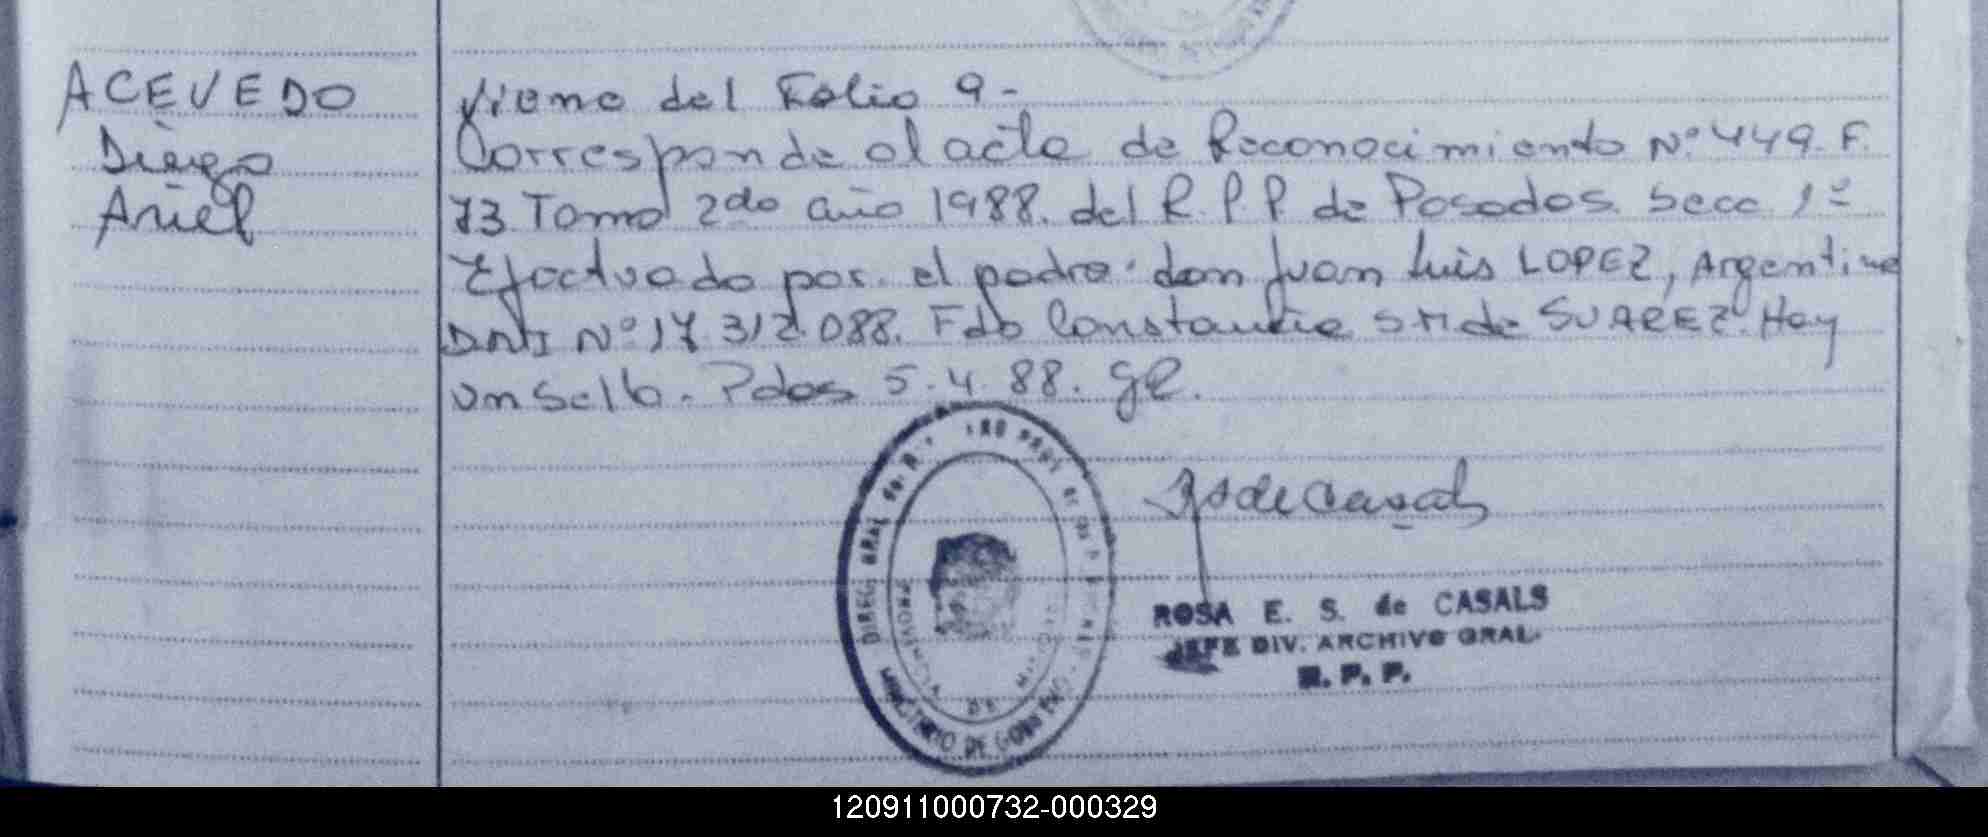 ACEVEDO
Diego
Ariel
Viene del Folio 9-
Corresponde al acta de Reconocimiento Nº 449. F.
73 Tomo 2do año 1988. del R.P.P de Posadas. Secc 1º
Efectuado por. el padre. don Juan Luis LOPEZ, Argentino
DNI Nº 17.312.088. Fdo Constancia S.M de SUAREZ. Hay
un Sello. Pdas 5.4.88. gl.
DIREC. GRAL de R.
PROVINCIA DE MISIONES
MINISTERIO DE GOBIERNO
ROSA E. S. de CASALS
JEFE DIV. ARCHIVO GRAL.
R. P. P.
120911000732-000329